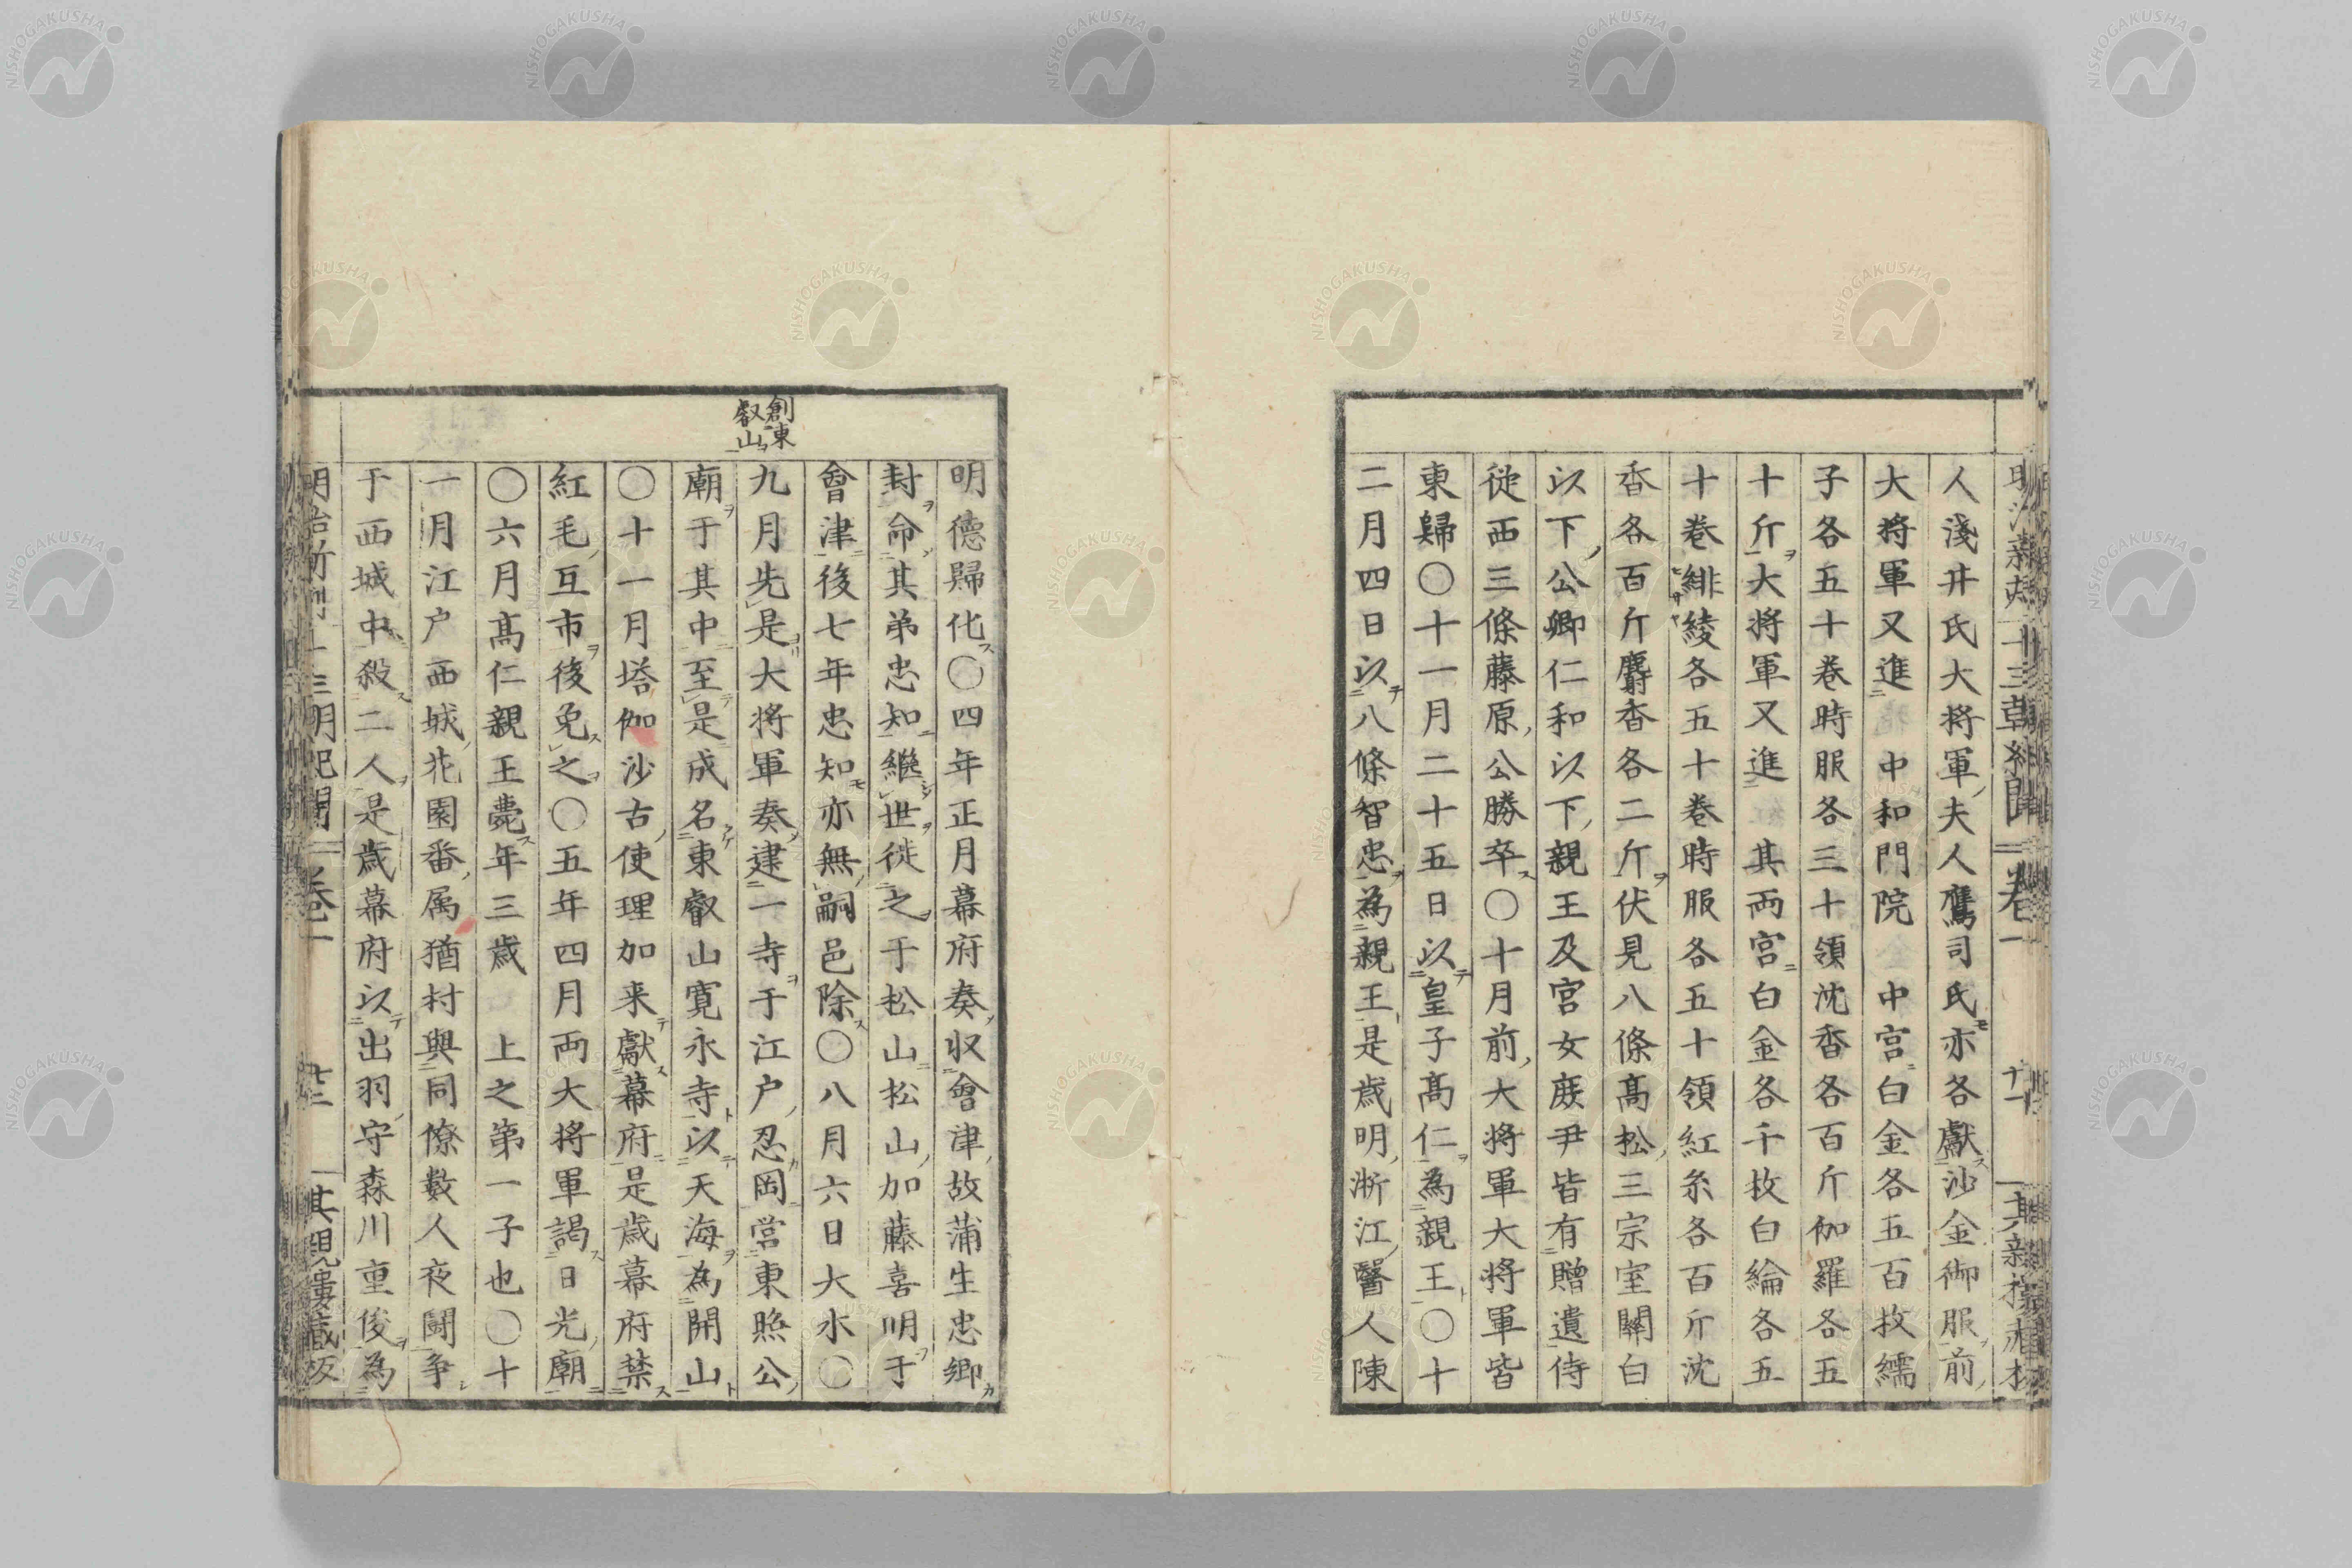 人淺井氏大将軍夫人鷹司氏亦各獻沙金御服前
大将軍又進 中和門院 中宮白金各五百枚繻
子各五十巻時服各三十領沈香各百斤伽羅各五
十斤大将軍又進 其両宮白金各千枚白綸各五
十巻緋綾各五十巻時服各五十領紅糸各百斤沈
香各百斤麝香各二斤伏見八條高松三宗室關白
以下公卿仁和以下親王及宮女庶尹皆有贈遺侍
従西三條藤原公勝卒〇十月前大将軍大将軍皆
東歸〇十一月二十五日以皇子高仁為親王〇十
二月四日以八條智忠為親王是歳明浙江醫人陳
創東
叡山
明德歸化〇四年正月幕府奏収會津故蒲生忠郷
封命其弟忠知繼世徙之于松山松山加藤喜明于
會津後七年忠知亦無嗣邑除〇八月六日大水〇
九月先是大将軍奏建一寺于江戸忍岡営東照公
廟于其中至是成名東叡山寛永寺以天海為開山
〇十一月塔伽沙古使理加来獻幕府是歳幕府禁
紅毛互市後免之〇五年四月両大将軍謁日光廟
〇六月高仁親王薨年三歳 上之第一子也〇十
一月江戸西城花園番属猶村與同僚數人夜闘争
于西城中殺二人是歳幕府以出羽守森川重俊為
明治新刻 十三朝紀聞 巻一 十二 其親樓藏板